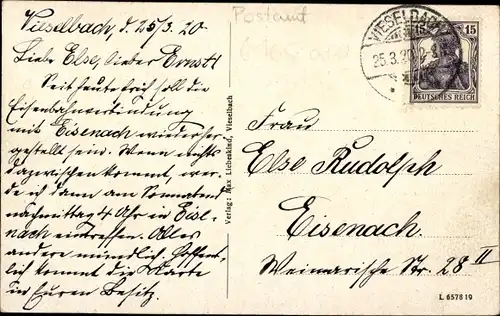 Vieselbach, d. 25/3.20.
Liebe Else, lieber Ernst!
Seit heute früh soll die
Eisenbahnverbindung
mit Eisenach wiederher-
gestellt sein. Wenn nichts
dazwischen kommt, wer-
de ich dann am Sonnabend
nachmittag 4 Uhr in Eise-
nach eintreffen. Alles
andere mündlich. Hoffent-
lich kommt die Karte
in Euren Besitz.
Postamt
Verlag: Max Liebeskind, Vieselbach
VIESELBACH
25.3.20
15 15
DEUTSCHES REICH
Frau
Else Rudolph
Eisenach.
Weimarische Str. 28 II
L 6578 19